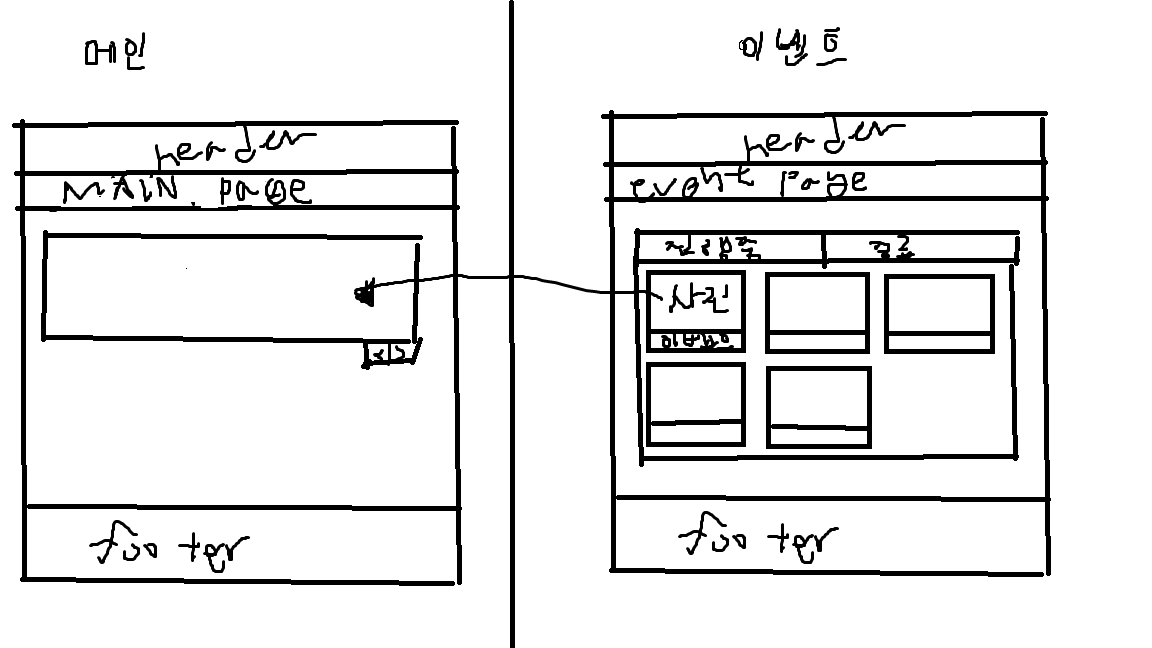 메인
header
MAIN page
footer
이벤트
header
event page
진행중
종료
사진
footer